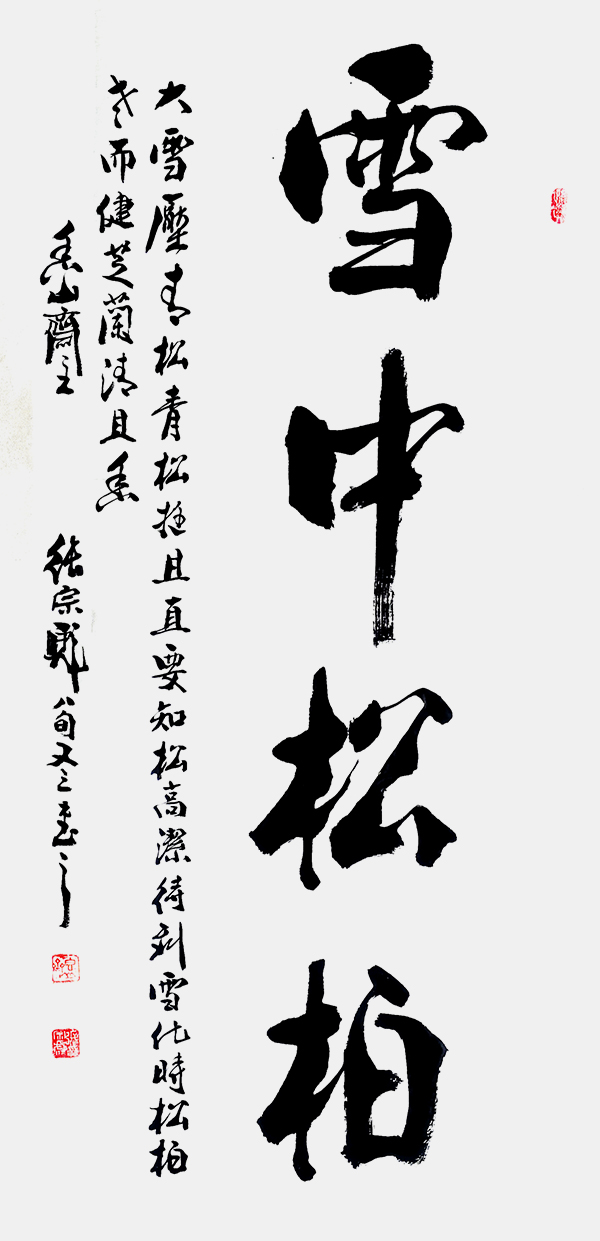 雪中松柏
大雪壓青松青松挺且直要知松高潔待到雪化時松柏
老而健芝蘭清且香
香山齋主 張宗 八旬又三書之